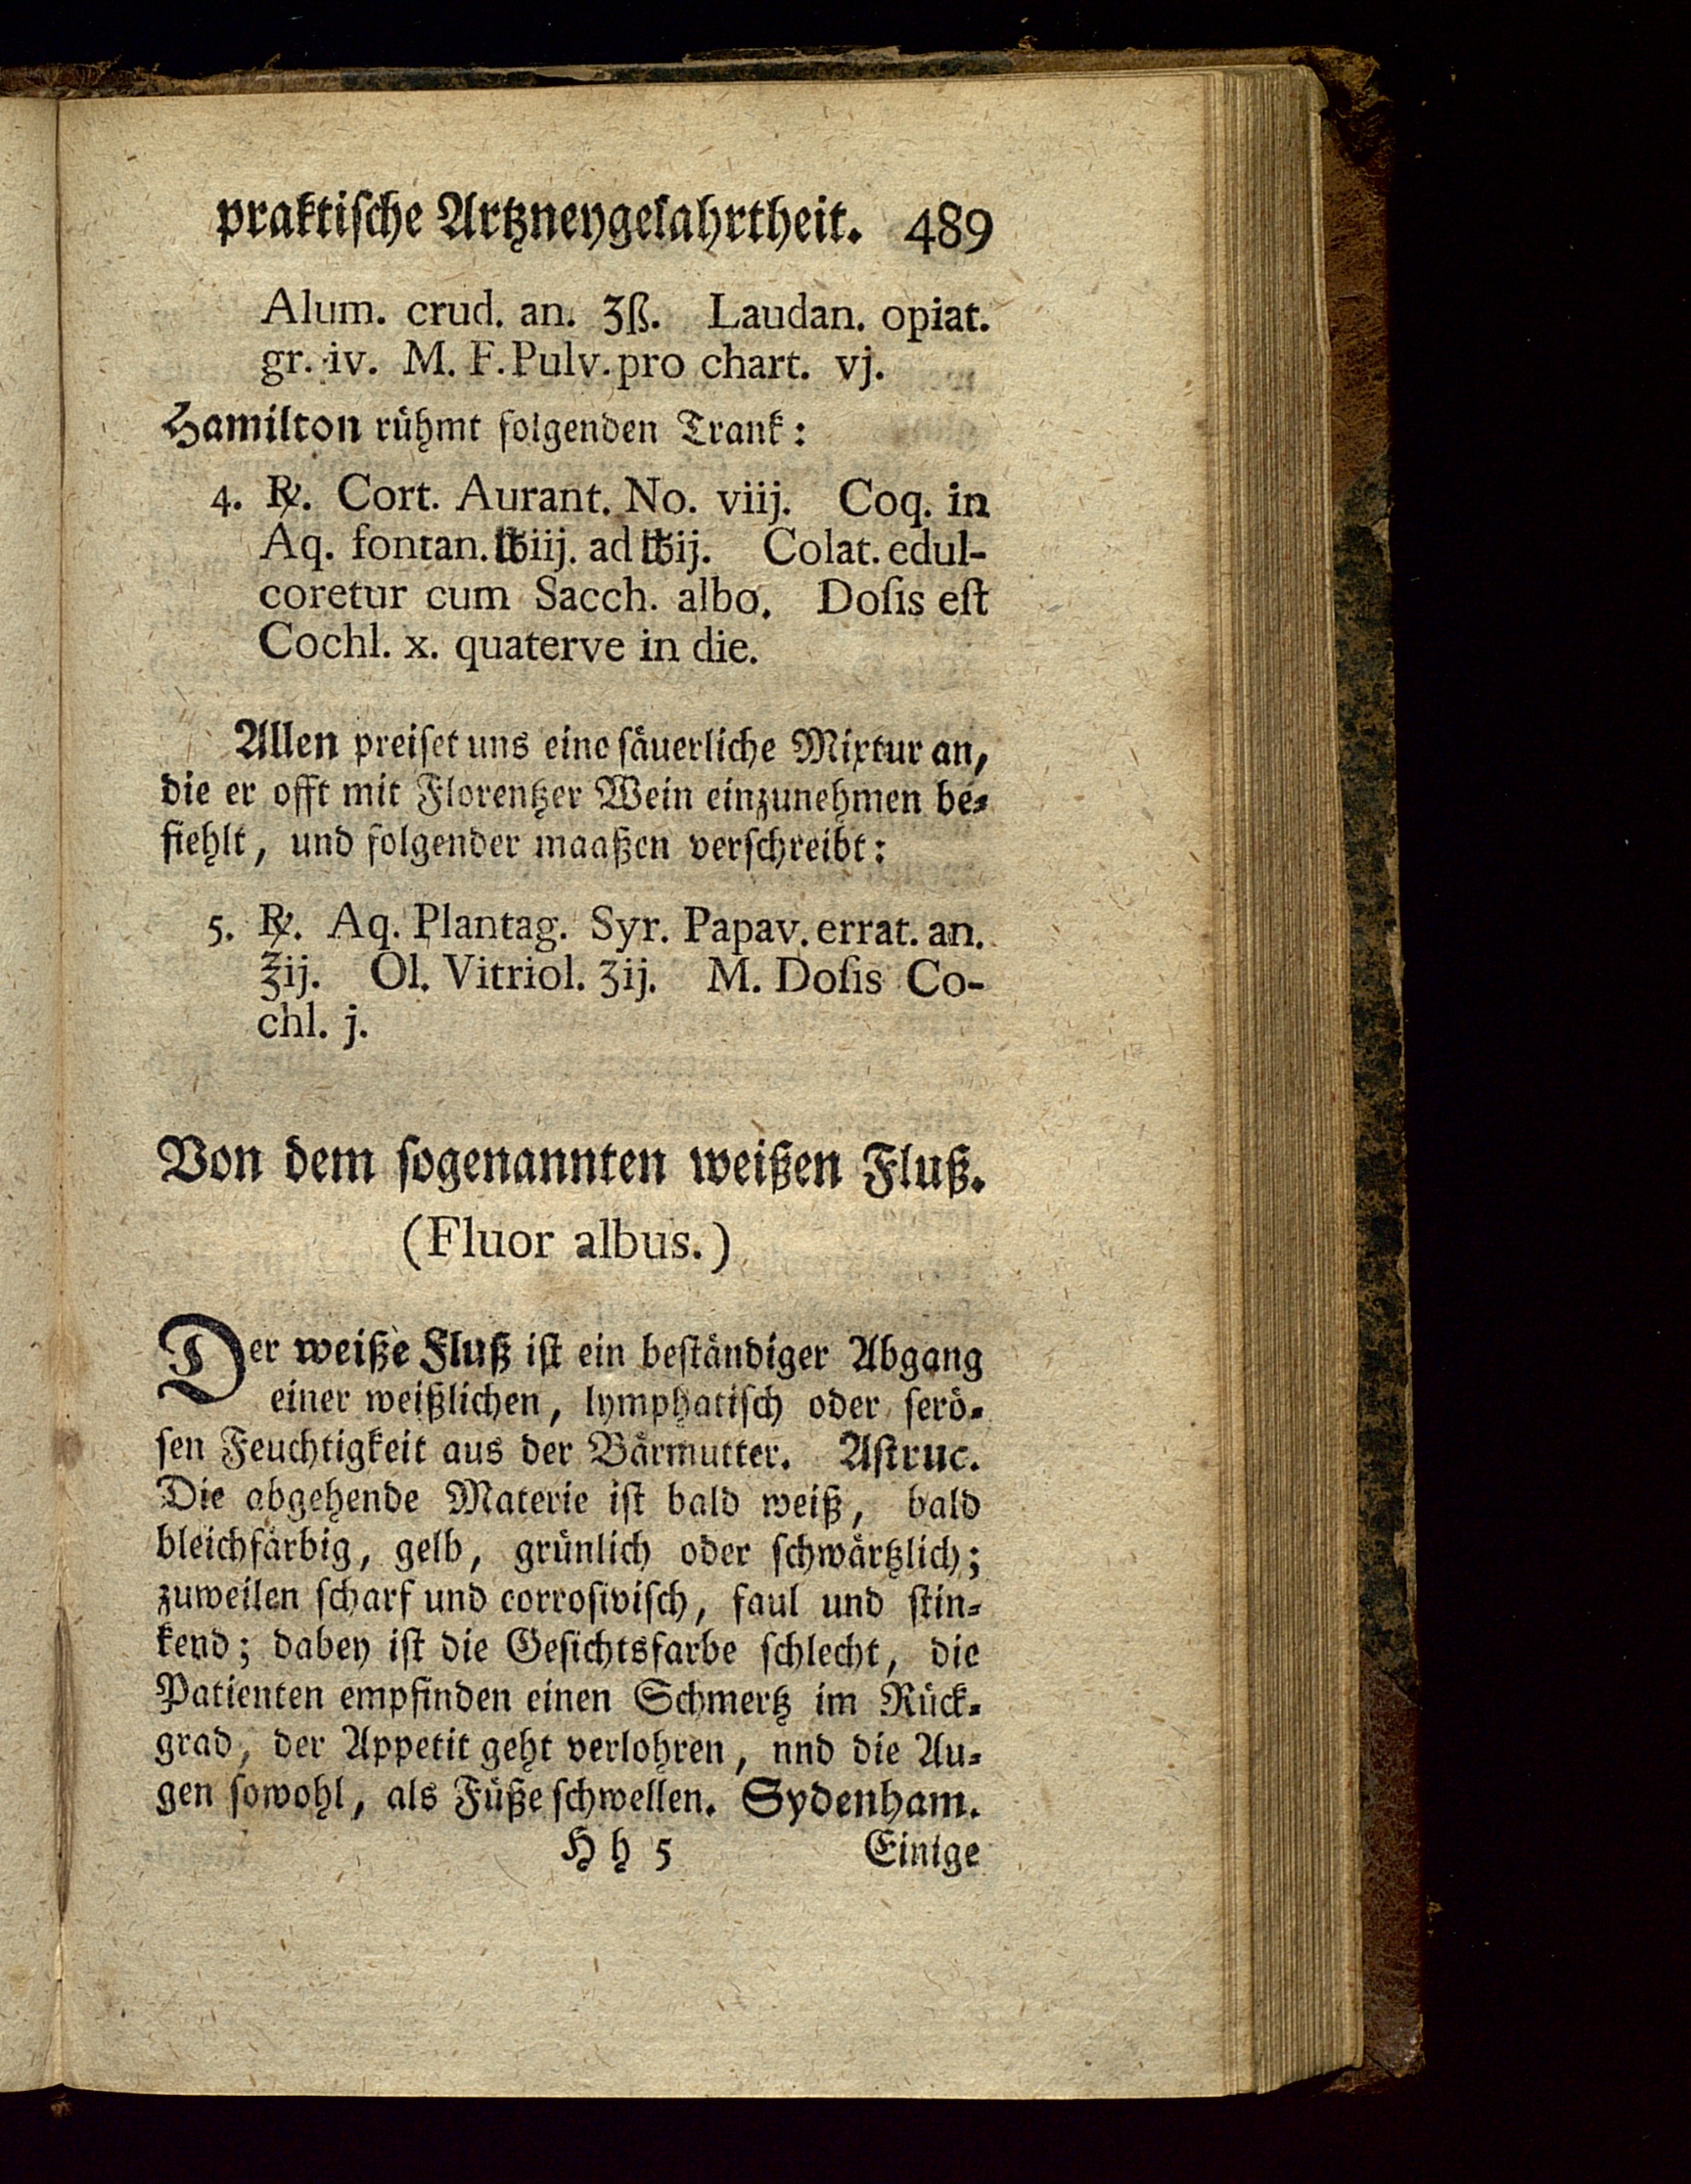 praktische Artzneygelahrtheit. 489
Alum. crud. an. ʒß. Laudan. opiat.
gr. iv. M. F. Pulv. pro chart. vj.
Hamilton rühmt folgenden Trank:
4. ℞. Cort. Aurant. No. viij. Coq. in
Aq. fontan. ℔iij. ad ℔ij. Colat. edul-
coretur cum Sacch. albo. Dosis est
Cochl. x. quaterve in die.
Allen preiset uns eine säuerliche Mixtur an,
die er offt mit Florentzer Wein einzunehmen be-
fiehlt, und folgender maaßen verschreibt:
5. ℞. Aq. Plantag. Syr. Papav. errat. an.
℥ij. Ol. Vitriol. ʒij. M. Dosis Co-
chl. j.
Von dem sogenannten weißen Fluß.
(Fluor albus.)
Der weiße Fluß ist ein beständiger Abgang
einer weißlichen, lymphatisch oder serö-
sen Feuchtigkeit aus der Bärmutter. Astruc.
Die abgehende Materie ist bald weiß, bald
bleichfärbig, gelb, grünlich oder schwärtzlich;
zuweilen scharf und corrosivisch, faul und stin-
kend; dabey ist die Gesichtsfarbe schlecht, die
Patienten empfinden einen Schmertz im Rück-
grad, der Appetit geht verlohren, nnd die Au-
gen sowohl, als Füße schwellen. Sydenham.
Hh 5 Einige